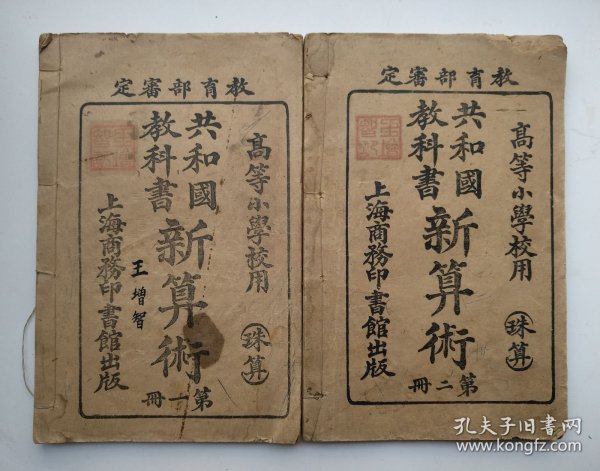 教育部審定
高等小學校用
珠算
共和國
教科書
新算術
第一冊
王增智
上海商務印書館出版
教育部審定
高等小學校用
珠算
共和國
教科書
新算術
第二冊
上海商務印書館出版
孔夫子旧书网
www.kongfz.com